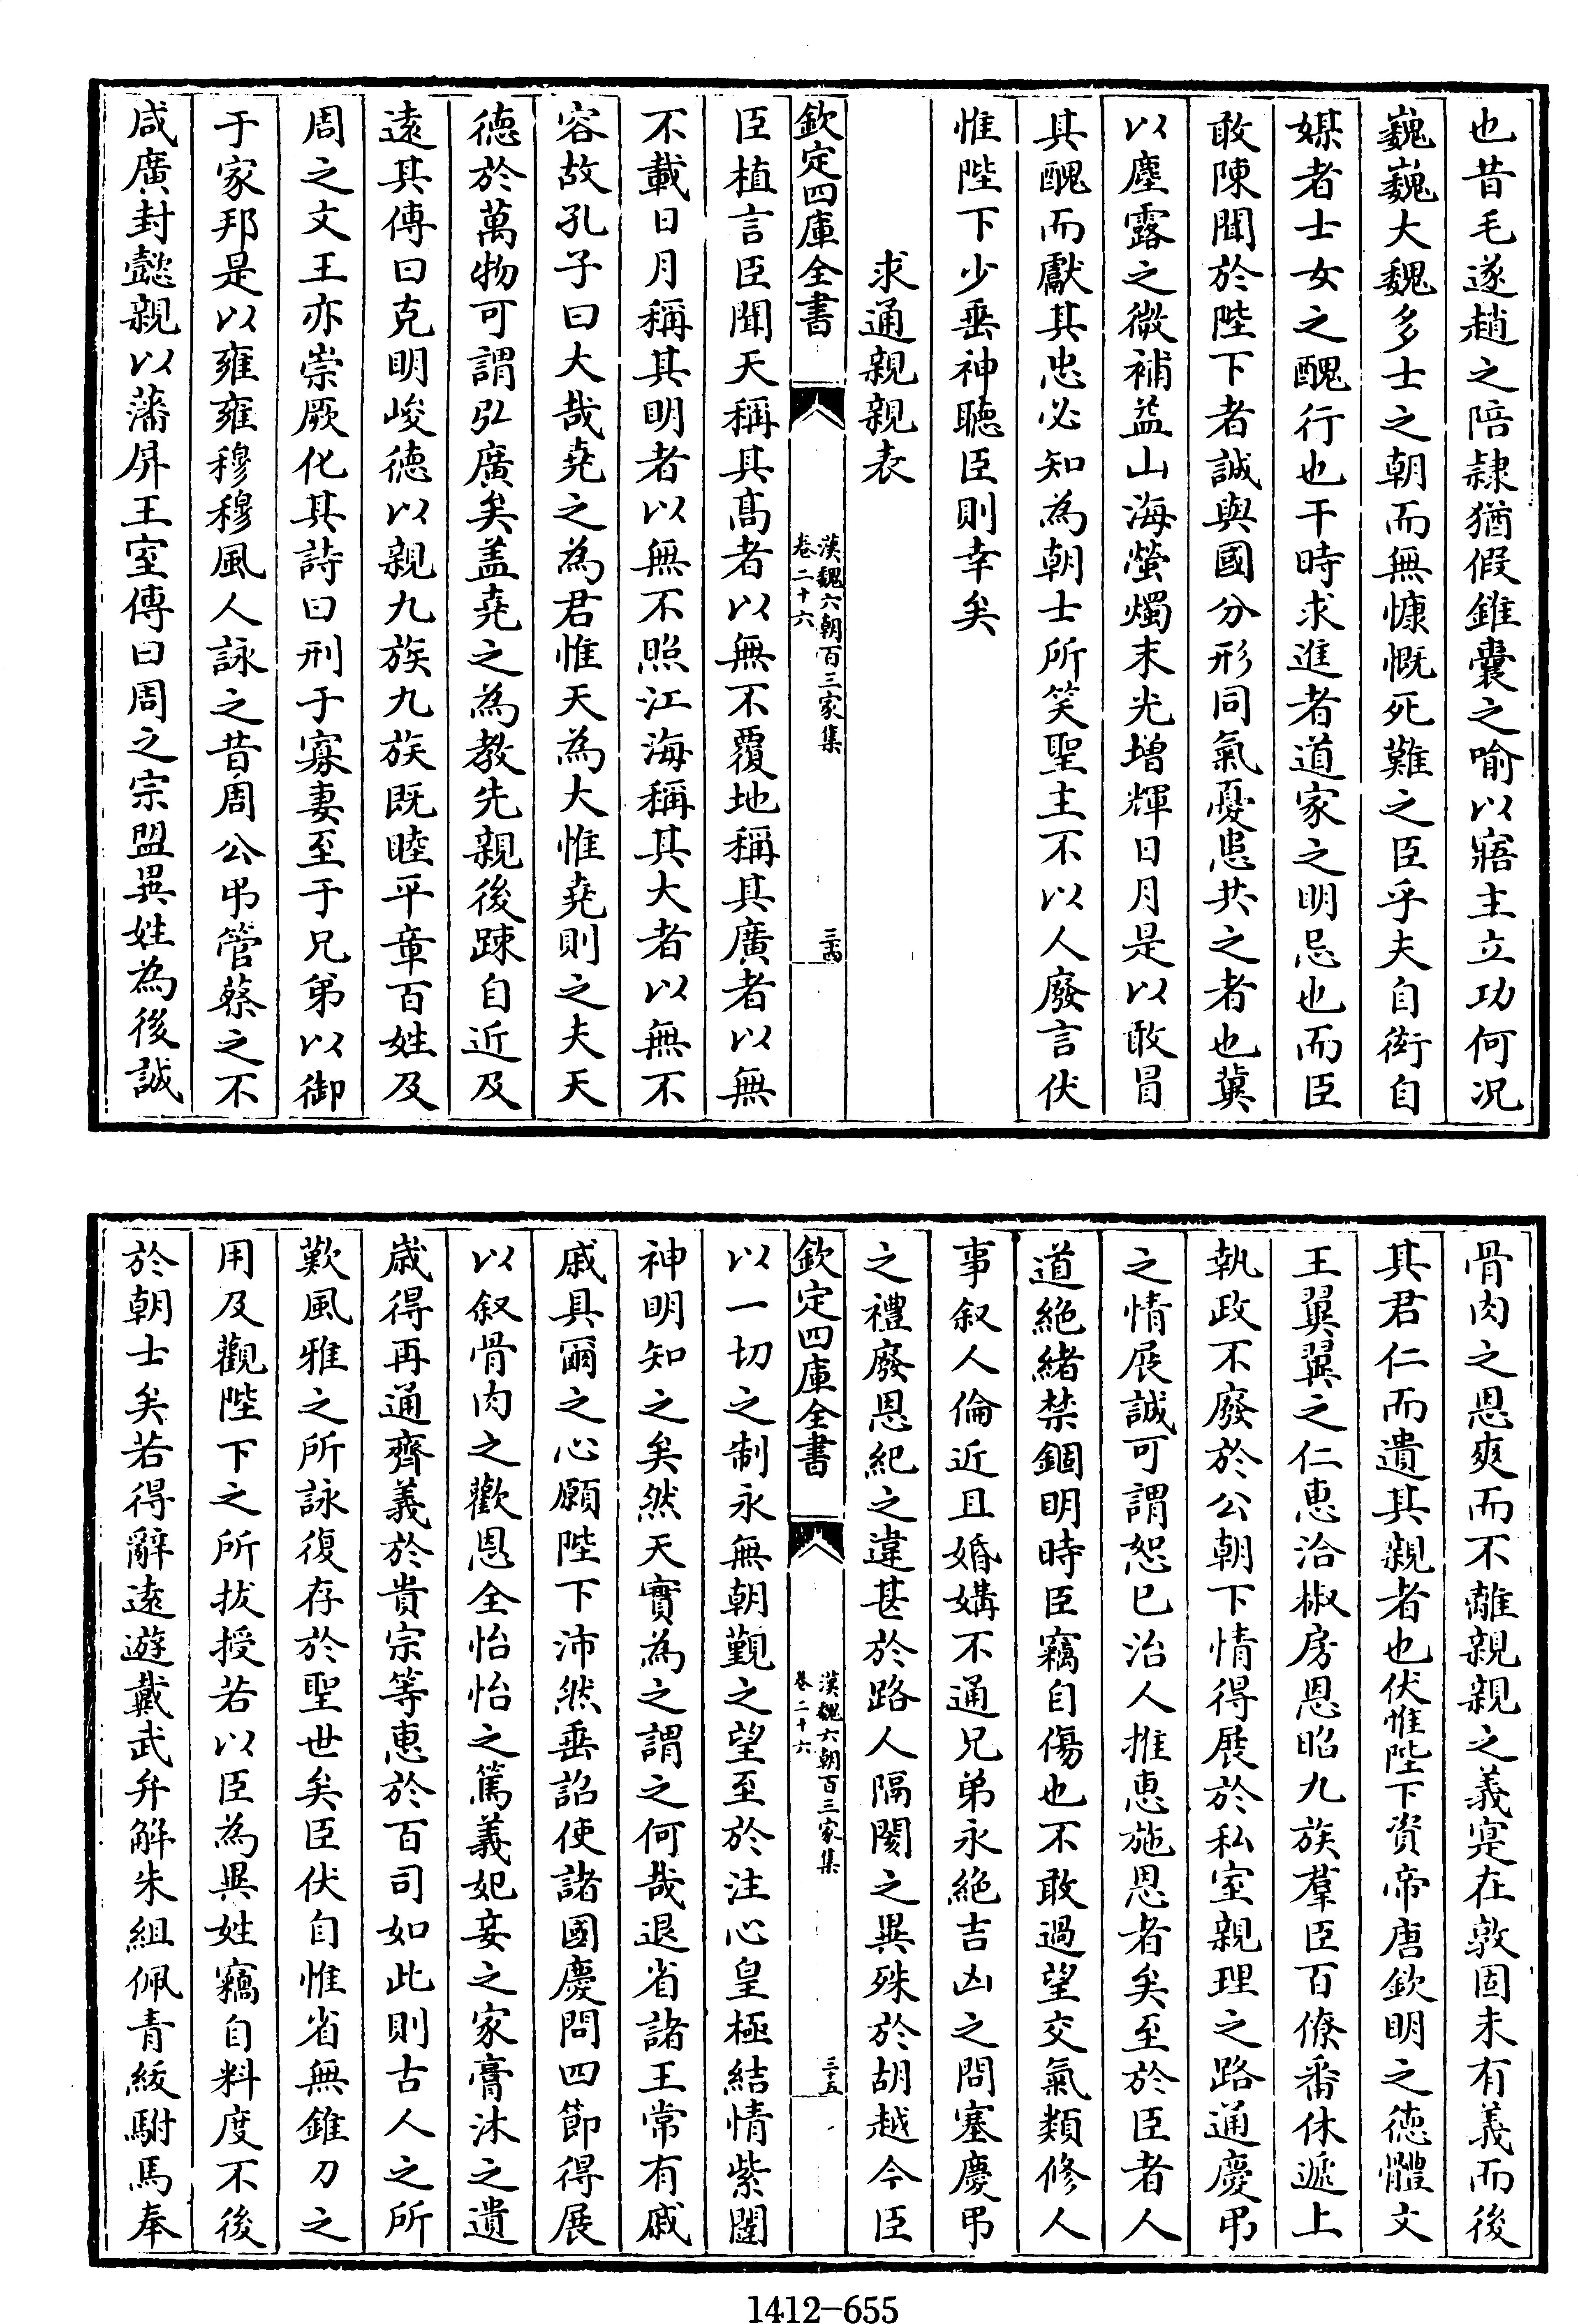 也昔毛遂趙之陪隷猶假錐囊之喻以寤主立功何况
巍巍大魏多士之朝而無慷慨死難之臣乎夫自衒自
媒者士女之醜行也干時求進者道家之明忌也而臣
敢陳聞於陛下者誠與國分形同氣憂患共之者也冀
以塵露之微補益山海螢燭末光增輝日月是以敢冒
其醜而獻其忠必知為朝士所笑聖主不以人廢言伏
惟陛下少垂神聽臣則幸矣
求通親親表
欽定四庫全書
漢魏六朝百三家集
卷二十六
三十四
臣植言臣聞天稱其高者以無不覆地稱其廣者以無
不載日月稱其明者以無不照江海稱其大者以無不
容故孔子曰大哉堯之為君惟天為大惟堯則之夫天
德於萬物可謂弘廣矣盖堯之為教先親後踈自近及
遠其傳曰克明峻德以親九族九族既睦平章百姓及
周之文王亦崇厥化其詩曰刑于寡妻至于兄弟以御
于家邦是以雍雍穆穆風人詠之昔周公弔管蔡之不
咸廣封懿親以藩屏王室傳曰周之宗盟異姓為後誠
骨肉之恩爽而不離親親之義寔在敦固未有義而後
其君仁而遺其親者也伏惟陛下資帝唐欽明之德體文
王翼翼之仁惠洽椒房恩昭九族羣臣百僚番休遞上
執政不廢於公朝下情得展於私室親理之路通慶弔
之情展誠可謂恕已治人推惠施恩者矣至於臣者人
道絶緒禁錮明時臣竊自傷也不敢過望交氣類修人
事叙人倫近且婚媾不通兄弟永絶吉凶之問塞慶弔
之禮廢恩紀之違甚於路人隔閡之異殊於胡越今臣
欽定四庫全書
漢魏六朝百三家集
卷二十六
三十五
以一切之制永無朝覲之望至於注心皇極結情紫闥
神明知之矣然天實為之謂之何哉退省諸王常有戚
戚具爾之心願陛下沛然垂詔使諸國慶問四節得展
以叙骨肉之歡恩全怡怡之篤義妃妾之家膏沐之遺
歲得再通齊義於貴宗等惠於百司如此則古人之所
歎風雅之所詠復存於聖世矣臣伏自惟省無錐刀之
用及觀陛下之所拔授若以臣為異姓竊自料度不後
於朝士矣若得辭遠遊戴武弁解朱組佩青紱駙馬奉
1412-655